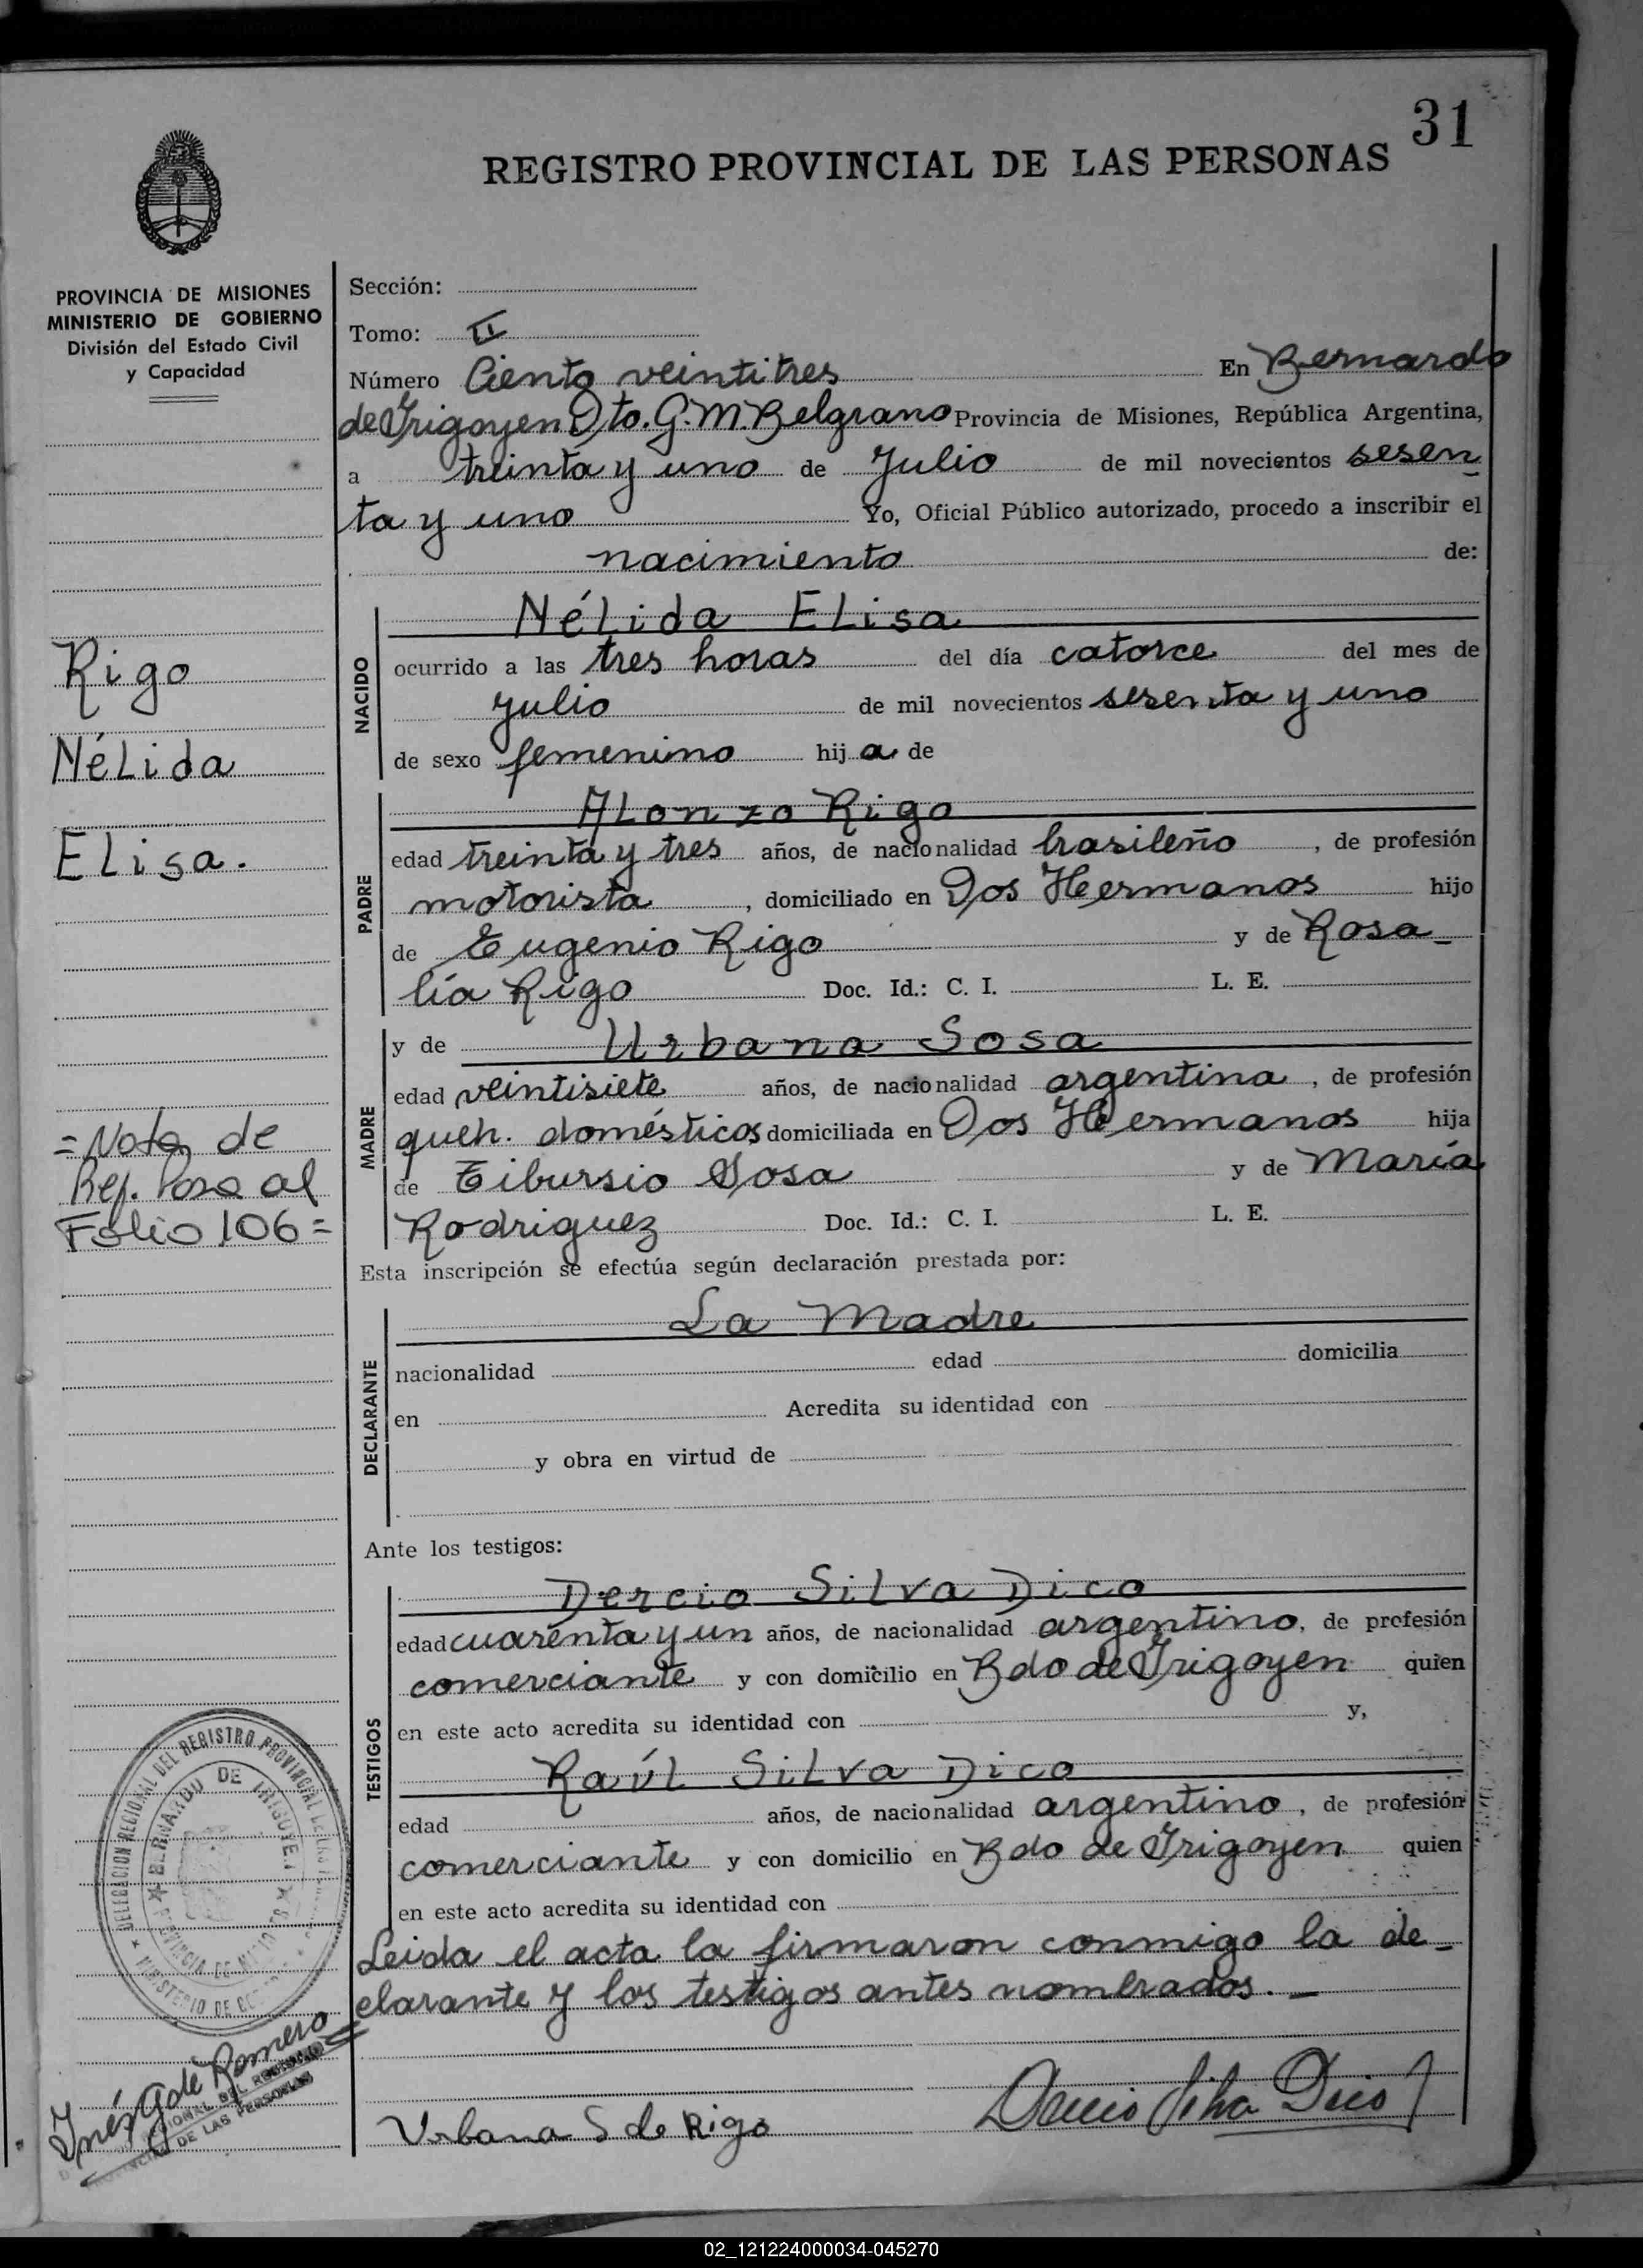 31
REGISTRO PROVINCIAL DE LAS PERSONAS
PROVINCIA DE MISIONES
MINISTERIO DE GOBIERNO
División del Estado Civil
y Capacidad
Rigo
Nélida
Elisa.
=Nota de
Ref. Pasa al
Folio 106=
Sección:
Tomo: II
Número Ciento veintitres En Bernardo
de Irigoyen Dto. G. M. Belgrano Provincia de Misiones, República Argentina,
a treinta y uno de Julio de mil novecientos sesen
ta y uno Yo, Oficial Público autorizado, procedo a inscribir el
nacimiento de:
NACIDO
Nélida Elisa
ocurrido a las tres horas del día catorce del mes de
Julio de mil novecientos sesenta y uno
de sexo femenino hija de
PADRE
Alonzo Rigo
edad treinta y tres años, de nacionalidad brasileño, de profesión
motorista, domiciliado en Dos Hermanos hijo
de Eugenio Rigo y de Rosa-
lía Rigo Doc. Id.: C. I. L. E.
MADRE
y de Urbana Sosa
edad veintisiete años, de nacionalidad argentina, de profesión
queh. domésticos domiciliada en Dos Hermanos hija
de Tibursio Sosa y de María
Rodriguez Doc. Id.: C. I. L. E.
Esta inscripción se efectúa según declaración prestada por:
DECLARANTE
La Madre
nacionalidad edad domicilia
en Acredita su identidad con
y obra en virtud de
Ante los testigos:
TESTIGOS
Dercio Silva Dico
edad cuarenta y un años, de nacionalidad argentino, de profesión
comerciante y con domicilio en Bdo de Irigoyen quien
en este acto acredita su identidad con y,
Raúl Silva Dico
edad años, de nacionalidad argentino, de profesión
comerciante y con domicilio en Bdo de Irigoyen quien
en este acto acredita su identidad con
Leida el acta la firmaron conmigo la de-
clarante y los testigos antes nombrados.-
DELEGACION REGIONAL DEL REGISTRO PROVINCIAL DE LAS
BERNARDO DE IRIGOYEN
PROVINCIA DE MISIONES
MINISTERIO DE
Inés G de Romero
DEL REGISTRO
DE LAS PERSONAS
Urbana S de Rigo
Dercio Silva Dico
02_121224000034-045270